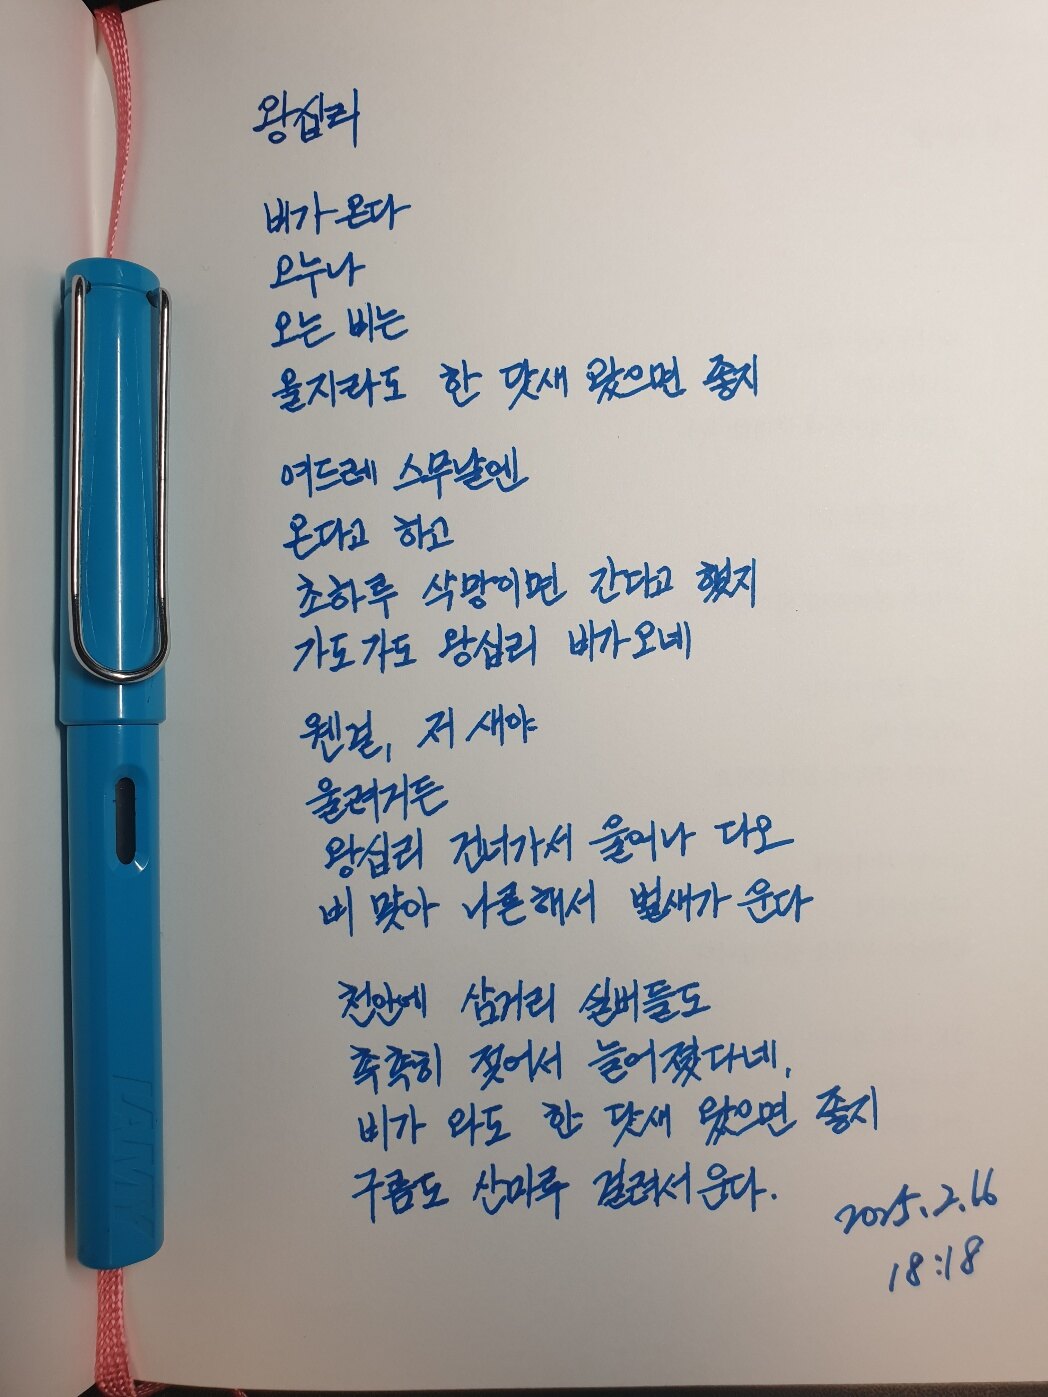 왕십리
비가 온다
오누나
오는 비는
올지라도 한 닷새 왔으면 좋지
여드레 스무날엔
온다고 하고
초하루 삭망이면 간다고 했지
가도 가도 왕십리 비가 오네
웬걸, 저 새야
울려거든
왕십리 건너가서 울어나 다오
비 맞아 나른해서 벌새가 운다
천안에 삼거리 실버들도
촉촉히 젖어서 늘어졌다네,
비가 와도 한 닷새 왔으면 좋지
구름도 산마루 걸려서 운다.
2025.2.16
18:18
LAMY